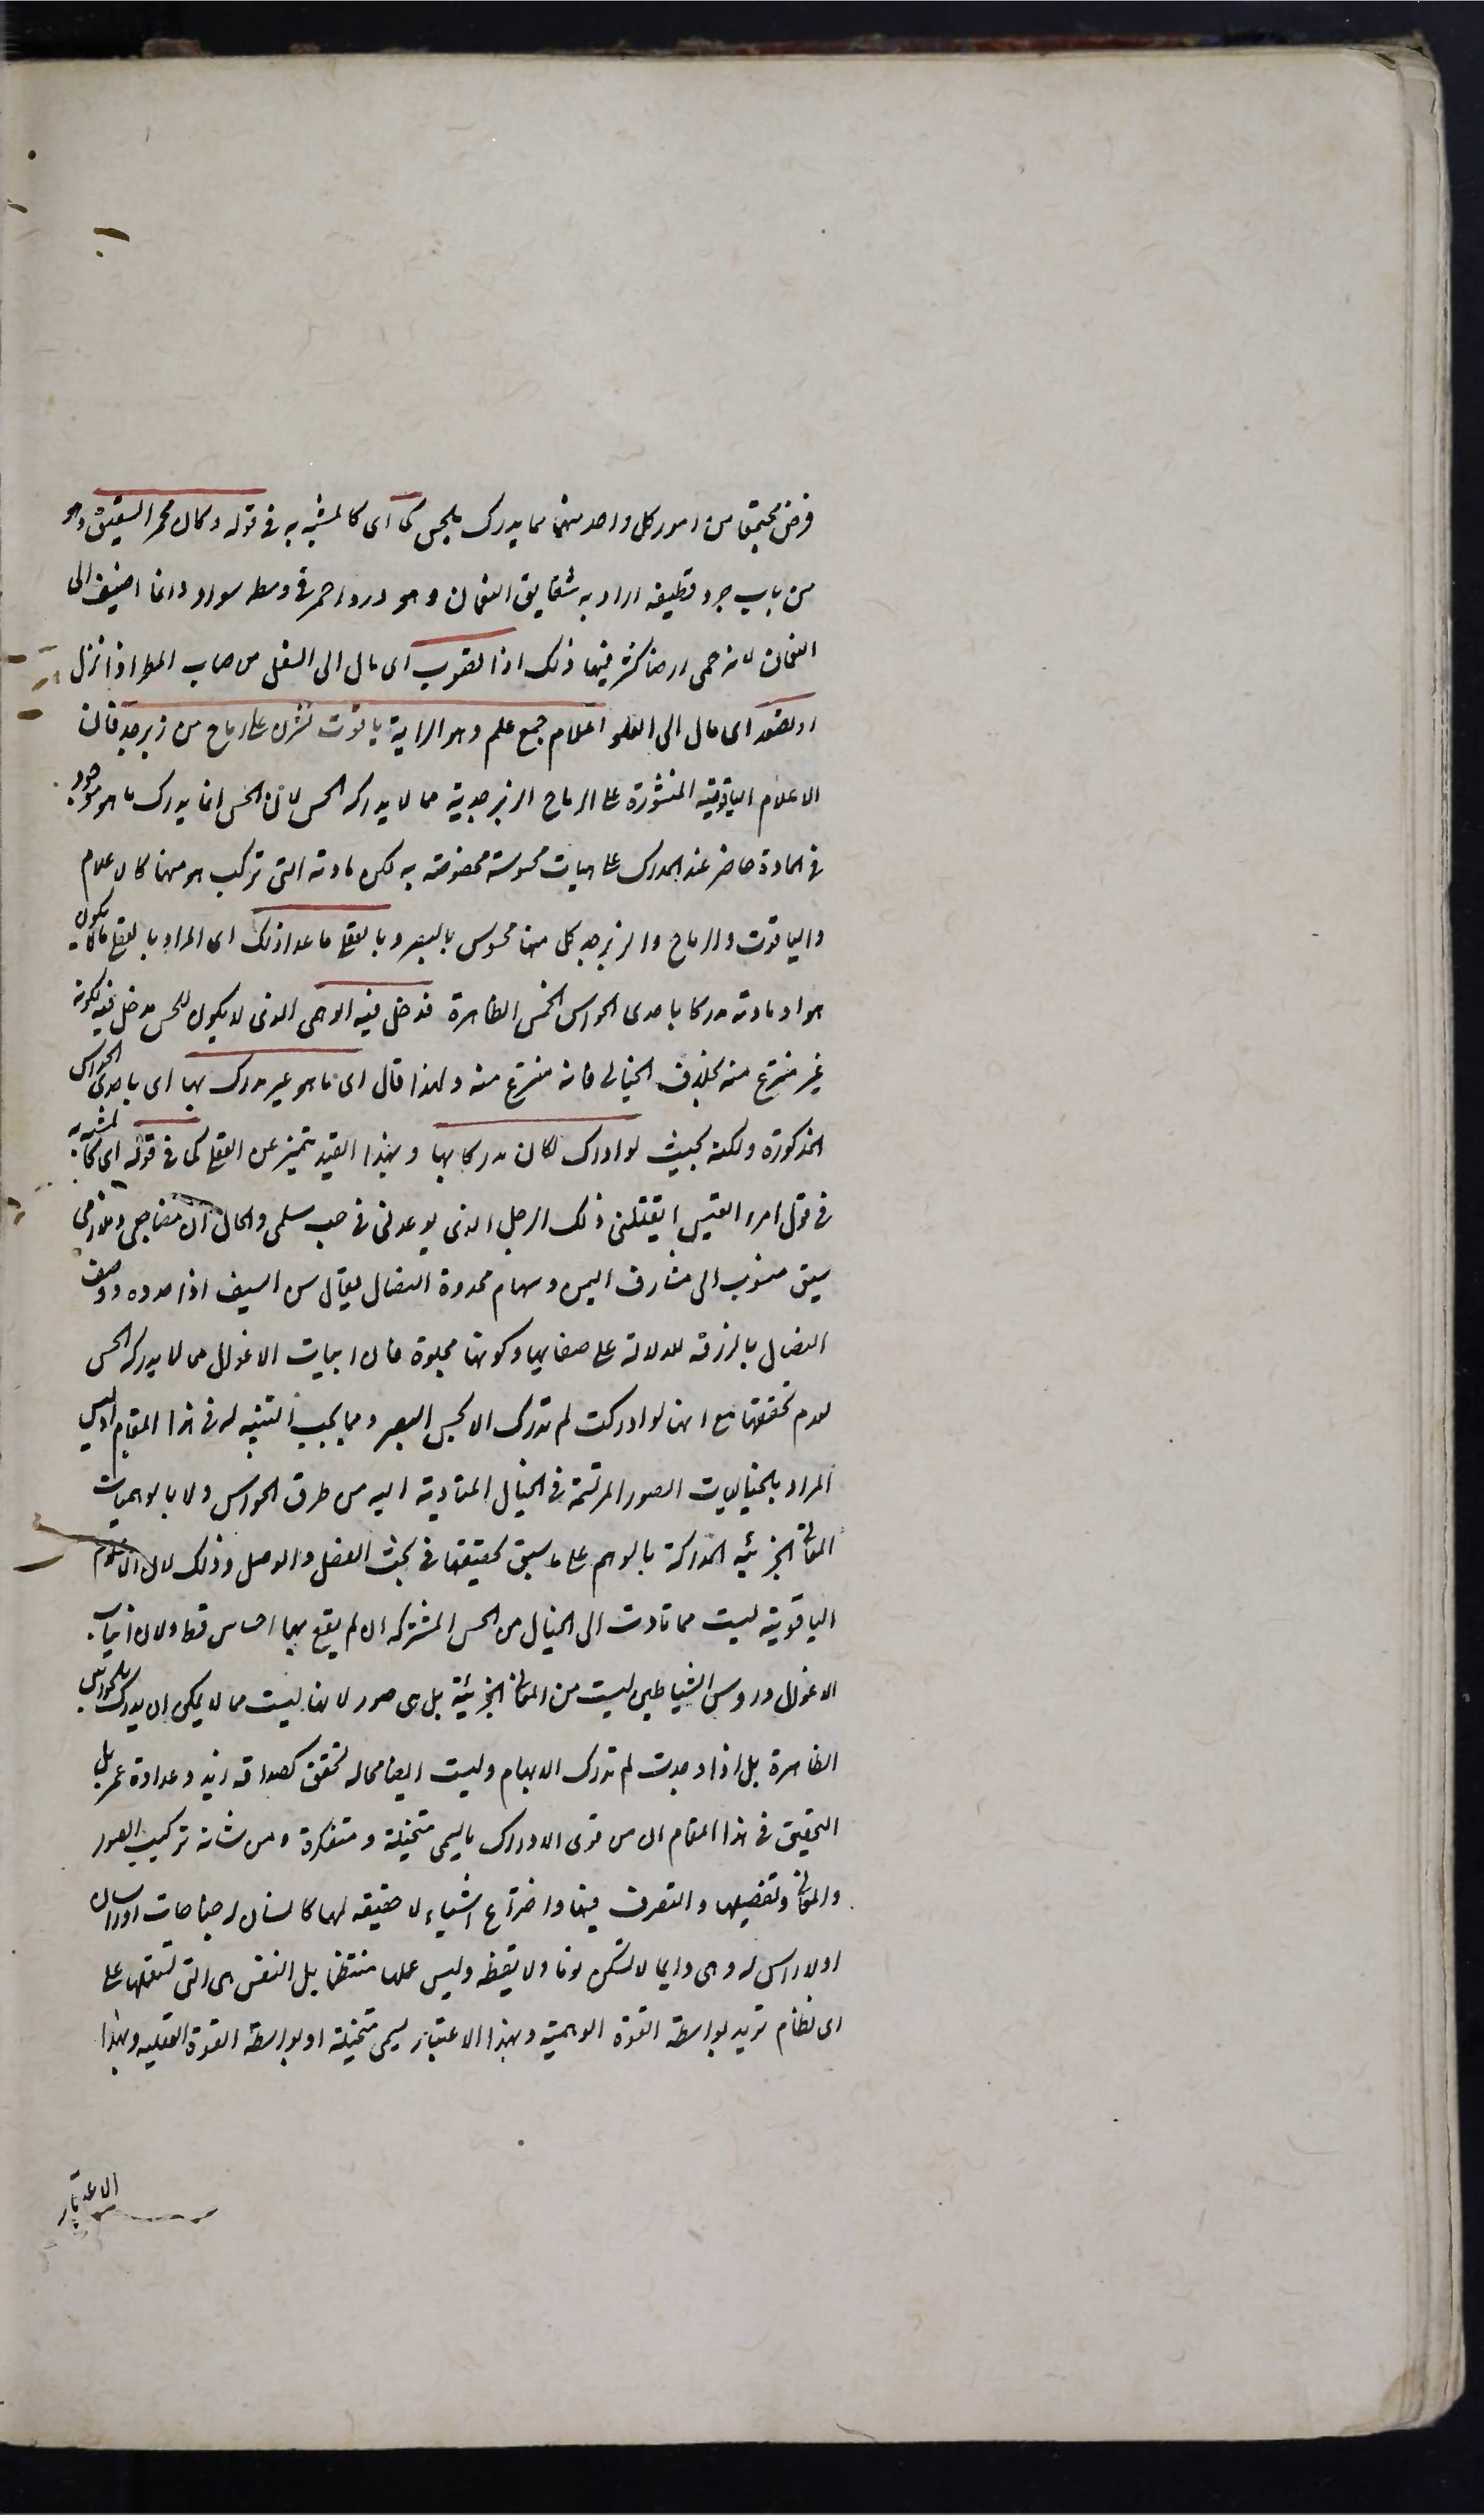 فرض مجتمعا من امور كل واحد منهما مما يدرك بالحس كما اى كالمشبه به فى قوله وكان محمر الشقيق وهو
من باب جرد قطيفة اراد به شقايق النعمان وهو ورد احمر فى وسطه سواد وانما اضيف الى
النعمان لانه حمى ارضا كثر فيها ذلك اذا تصوب اى مال الى السفل من صاب المطر اذا نزل
او تصعد اى مال الى العلو اعلام جمع علم وهو الراية ياقوت نشرن على رماح من زبرجد فان
الاعلام الياقوتية المنشورة على الرماح الزبرجدية مما لا يدركه الحس لان الحس انما يدرك ما هو موجود
فى المادة حاضر عند المدرك على هيات محسوسة مخصوصة به لكن مادته التى تركب هو منها كالاعلام
والياقوت والرماح والزبرجد كل منها محسوس بالبصر وبالعقلى ما عدا ذلك اى المراد بالعقلى ما لا يكون
هو او مادته مدركا باحدى الحواس الخمس الظاهرة فدخل فيه الوهمى الذى لا يكون للحس مدخل فيه لكونه
غير منتزع منه بخلاف الخيالى فانه منتزع منه ولهذا قال اى ما هو غير مدرك بها اى باحدى الحواس
المذكورة ولكنه بحيث لو ادرك لكان مدركا بها وبهذا القيد يتميز عن العقلى كما فى قوله اى كالمشبه به
فى قول امرء القيس ايقتلنى ذلك الرجل الذى يوعدنى فى حب سلمى والحال ان مضاجعى وملازمى
سيف منسوب الى مشارف اليمن وسهام محددة النصال يقال سن السيف اذا حدده ووصف
النصال بالزرقة للدلالة على صفايها وكونها مجلوة فان انياب الاغوال مما لا يدركه الحس
لعدم تحققها مع انها لو ادركت لم تدرك الا بحس البصر ومما يجب التنبيه له فى هذا المقام ان ليس
المراد بالخياليات الصور المرتسمة فى الخيال المتادية اليه من طرق الحواس ولا بالوهميات
المعانى الجزئية المدركة بالوهم على ما سبق تحقيقها فى بحث الفصل والوصل وذلك لان الاعلام
الياقوتية ليست مما تادت الى الخيال من الحس المشترك اذ لم يقع بها احساس قط ولان انياب
الاغوال وروس الشياطين ليست من المعانى الجزئية بل هى صور لانها ليست مما لا يمكن ان يدرك بالحواس
الظاهرة بل اذا وجدت لم تدرك الا بها وليست ايضا مما له تحقق كصداقة زيد وعداوة عمر بل
التحقيق فى هذا المقام ان من قوى الادراك ما يسمى متخيلة ومتفكرة ومن شانه تركيب الصور
والمعانى وتفصيلها والتصرف فيها واختراع اشياء لا حقيقه لها كانسان له جناحان او راسان
او لا راس له وهى دايما لا تسكن نوما ولا يقظه وليس عملها منتظما بل النفس هى التى تستعملها على
اى نظام تريد بواسطة القوة الوهمية وبهذا الاعتبار يسمى متخيلة او بواسطة القوة العقليه وبهذا
الاعتبار